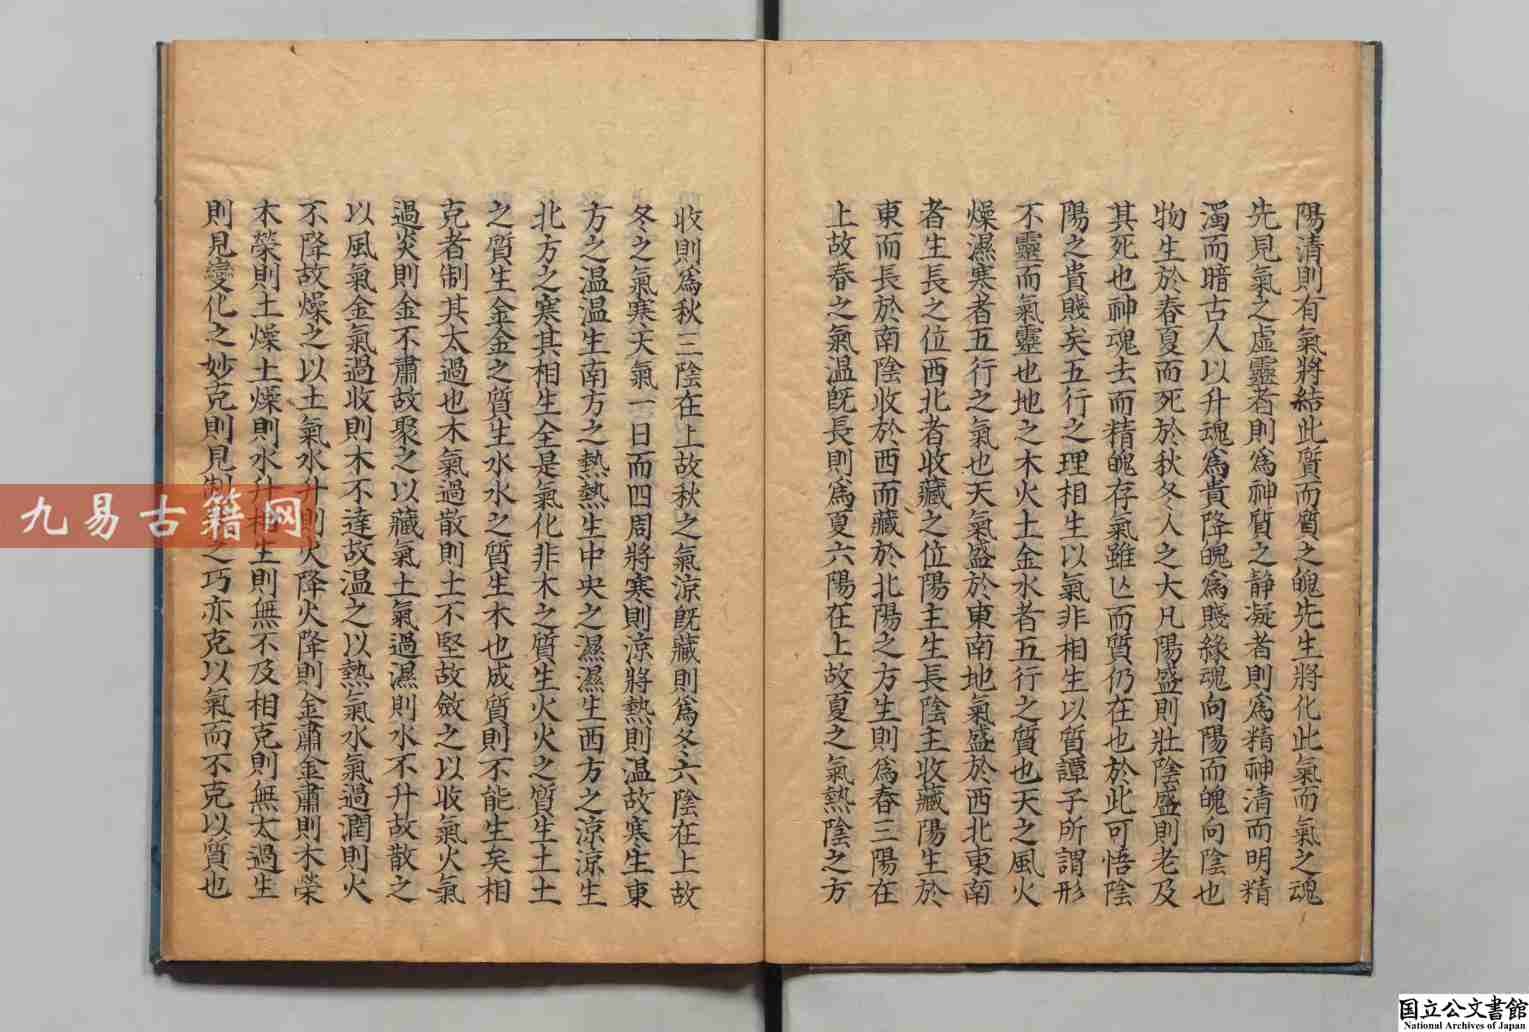 陽清則有氣將結此質而質之魄先生將化此氣而氣之魂
先見氣之虛靈者則爲神質之靜凝者則爲精神清而明精
濁而暗古人以升魂爲貴降魄爲賤緣魂向陽而魄向陰也
物生於春夏而死於秋冬人之大凡陽盛則壯陰盛則老及
其死也神魂去而精魄存氣雖亾而質仍在也於此可悟陰
陽之貴賤矣五行之理相生以氣非相生以質譚子所謂形
不靈而氣靈也地之木火土金水者五行之質也天之風火
燥濕寒者五行之氣也天氣盛於東南地氣盛於西北東南
者生長之位西北者收藏之位陽主生長陰主收藏陽生於
東而長於南陰收於西而藏於北陽之方生則爲春三陽在
上故春之氣温旣長則爲夏六陽在上故夏之氣熱陰之方
收則爲秋三陰在上故秋之氣涼旣藏則爲冬六陰在上故
冬之氣寒天氣一日而四周將寒則涼將熱則温故寒生東
方之温温生南方之熱熱生中央之濕濕生西方之涼涼生
北方之寒其相生全是氣化非木之質生火火之質生土土
之質生金金之質生水水之質生木也成質則不能生矣相
克者制其太過也木氣過散則土不堅故斂之以收氣火氣
過炎則金不肅故聚之以藏氣土氣過濕則水不升故散之
以風氣金氣過收則木不達故温之以熱氣水氣過潤則火
不降故燥之以土氣水升則火降火降則金肅金肅則木榮
木榮則土燥土燥則水升相生則無不及相克則無太過生
則見變化之妙克則見制之巧亦克以氣而不克以質也
九易古籍网
国立公文書館
National Archives of Japan